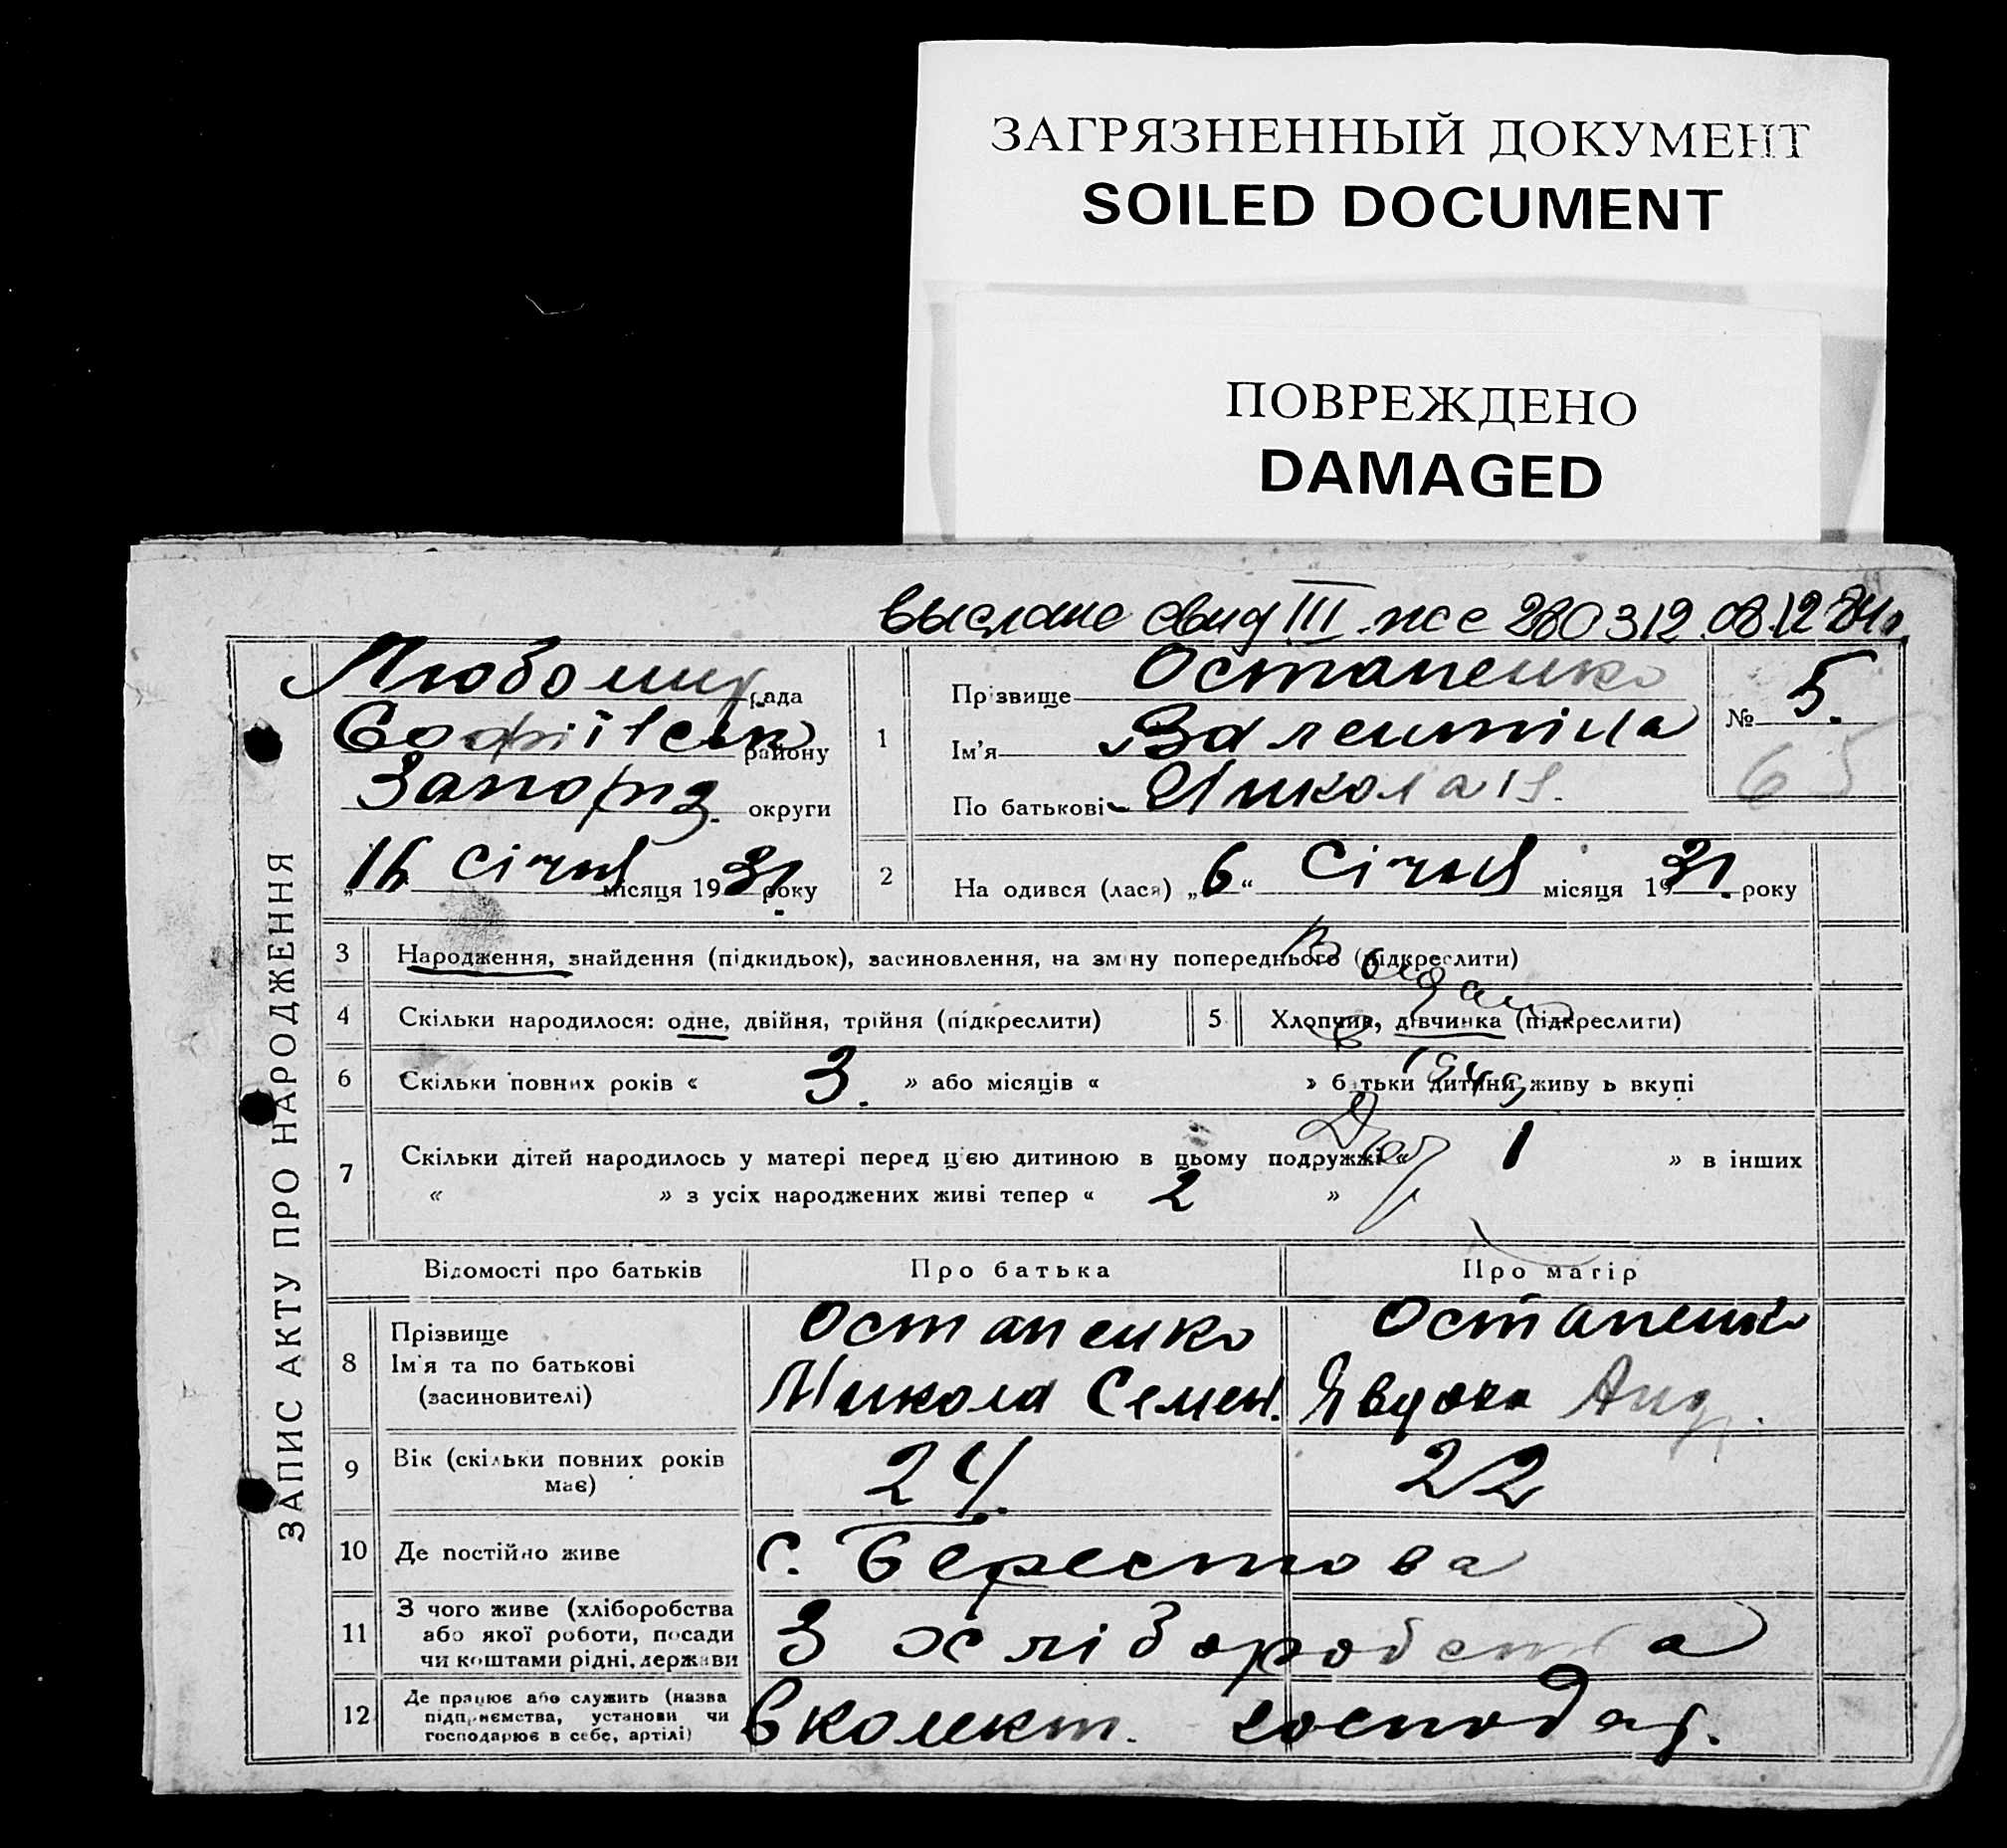 ЗАГРЯЗНЕННЫЙ ДОКУМЕНТ
SOILED DOCUMENT
ПОВРЕЖДЕНО
DAMAGED
выслано свид III жс 280312 08.12.84г.
ЗАПИС АКТУ ПРО НАРОДЖЕННЯ
Любомир рада
Софіївськ району
Запоріз. округи
16 Січня місяця 1931 року
1 Прізвище Остапенко
Ім'я Валентіна
По батькові Микола
№ 5.
65
2 На одився (лася) „6“ Січня місяця 1931 року
3 Народження, знайдення (підкидьок), засиновлення, на зміну попереднього (підкреслити)
4 Скільки народилося: одне, двійня, трійня (підкреслити)
5 Хлопчик, дівчинка (підкреслити)
6 Скільки повних років « 3. » або місяців « » батьки дитини живуть вкупі
7 Скільки дітей народилось у матері перед цією дитиною в цьому подружжі « 1 » в інших
« » з усіх народжених живі тепер « 2 »
Відомості про батьків Про батька Про матір
8 Прізвище
Ім'я та по батькові
(засиновителі)
Остапенко
Микола Семен.
Остапенко
Явдоха Анд.
9 Вік (скільки повних років
має)
24.
22
10 Де постійно живе с. Берестова
11 З чого живе (хліборобства
або якої роботи, посади
чи коштами рідні, держави
З хліборобства
12 Де працює або служить (назва
підприємства, установи чи
господарює в себе, артілі)
в колект. господар.